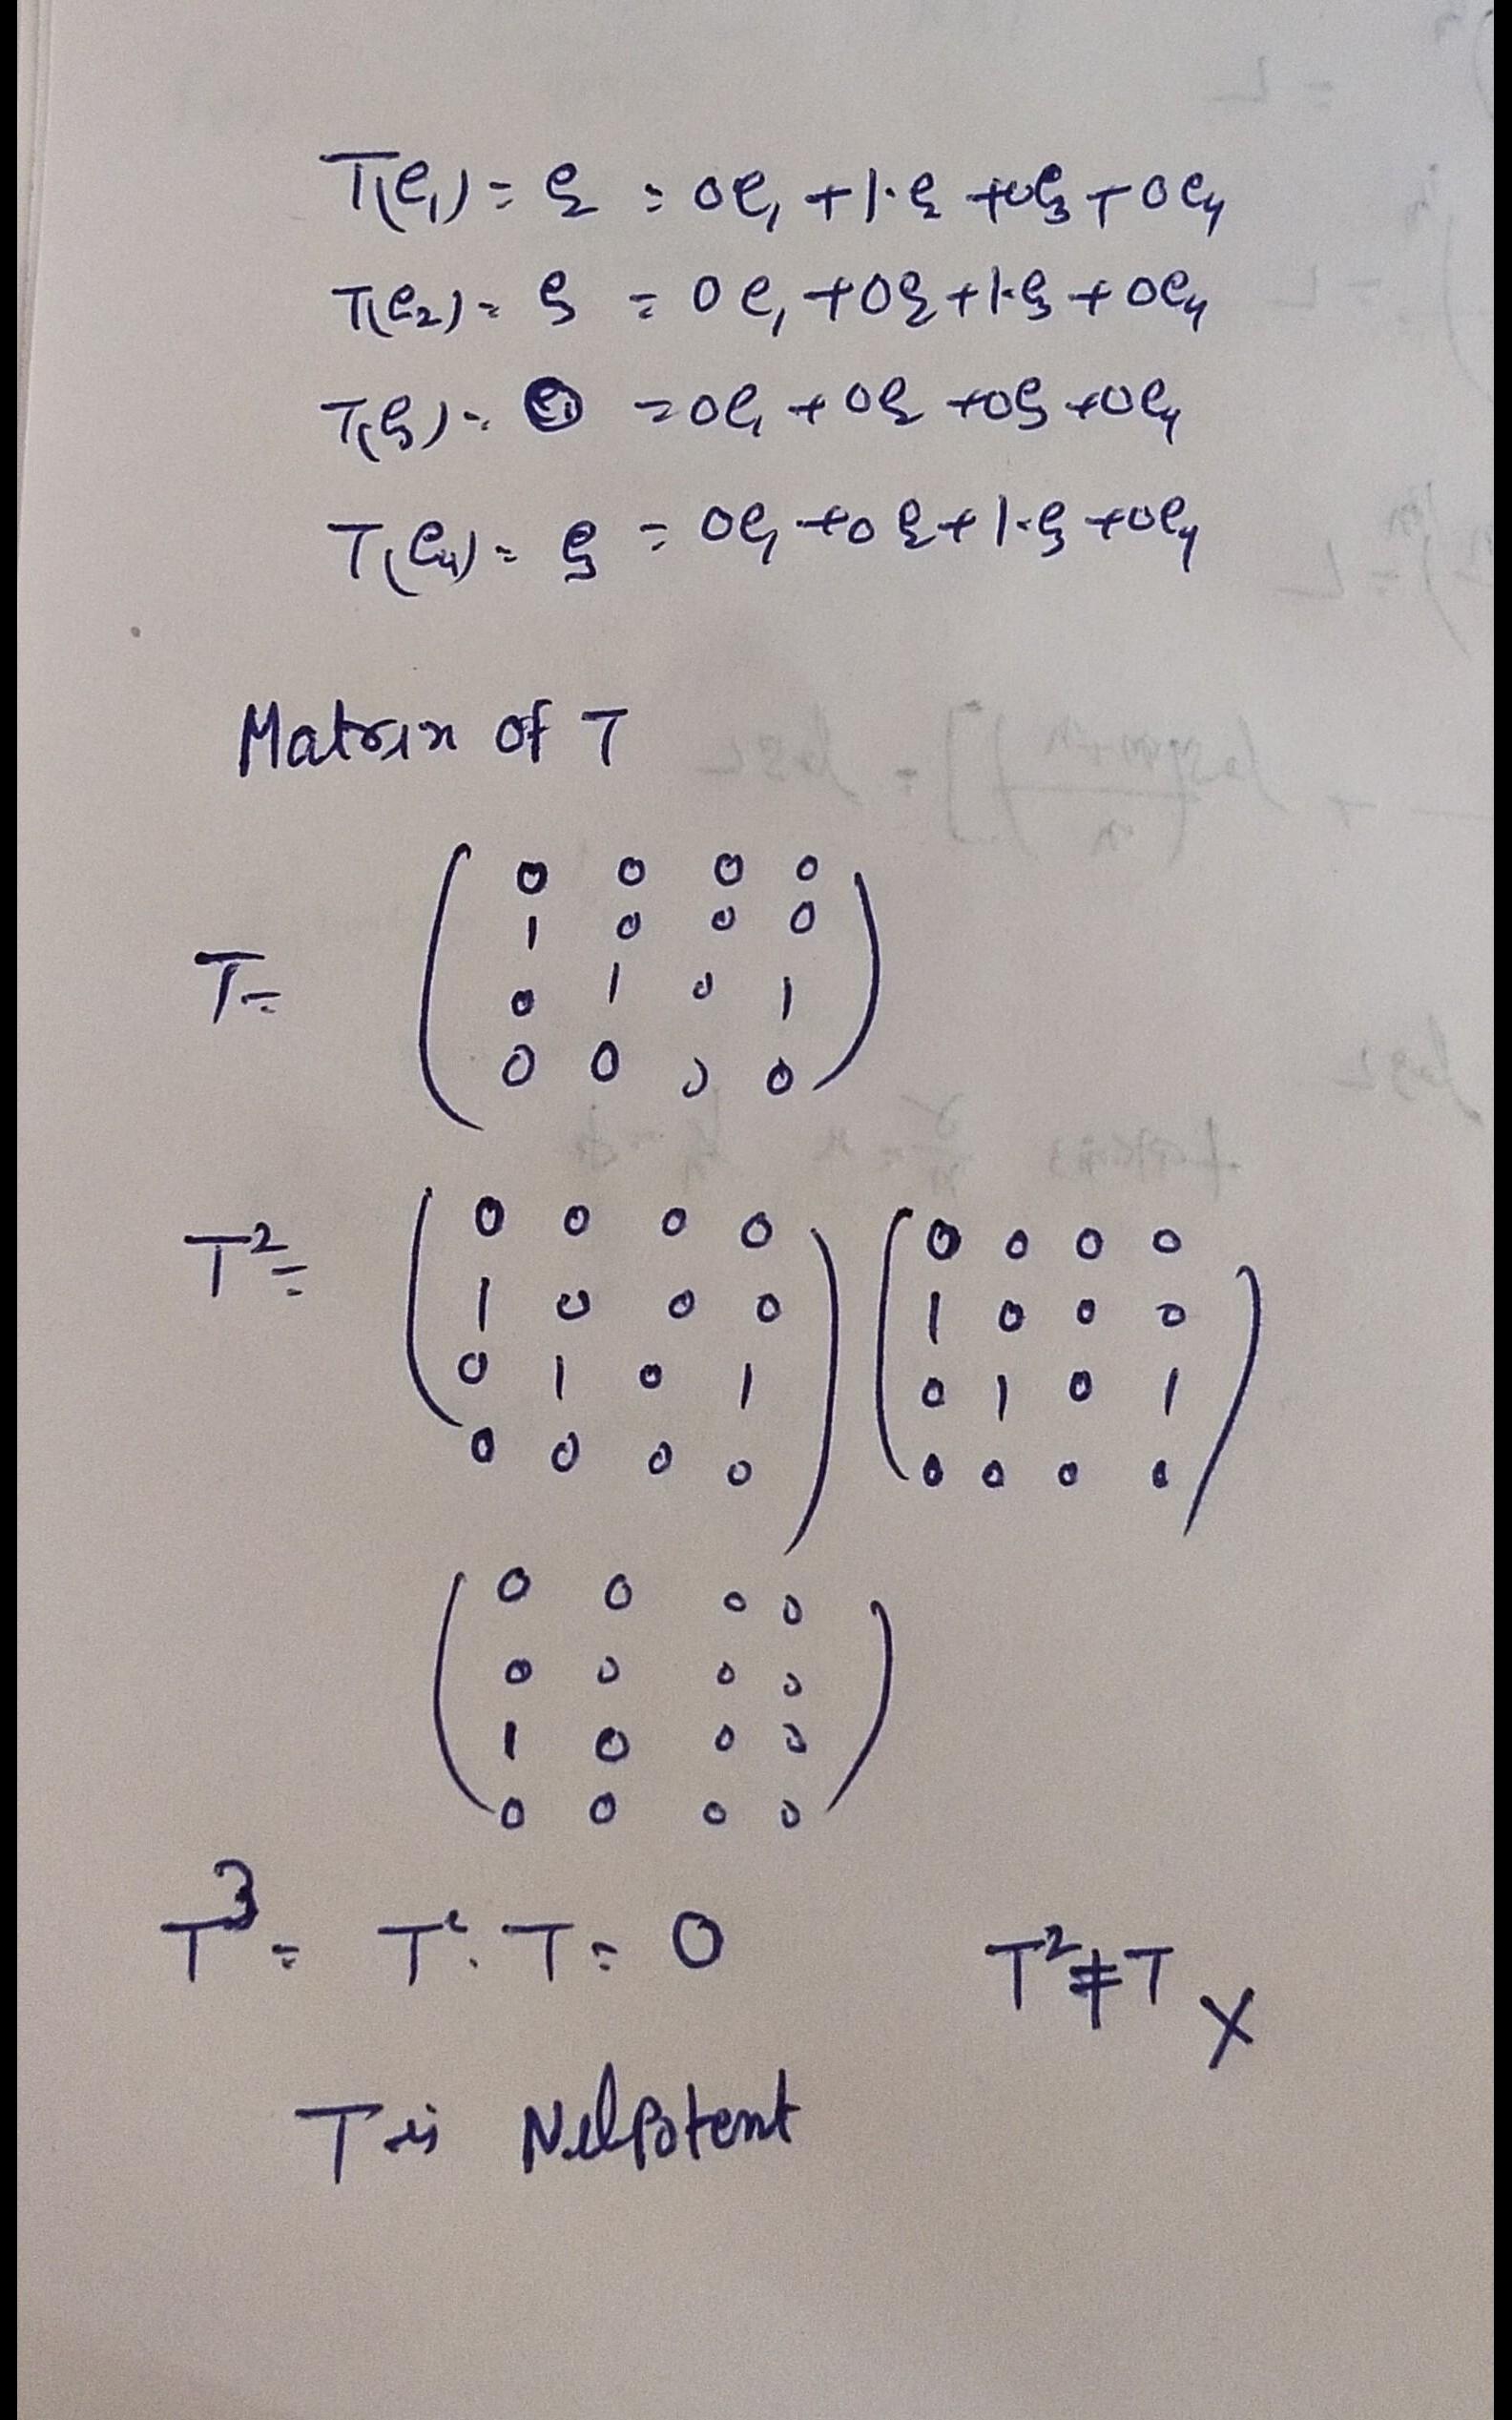 T(e₁) = e₂ = 0e₁ + 1·e₂ + 0e₃ + 0e₄
T(e₂) = e₃ = 0e₁ + 0e₂ + 1·e₃ + 0e₄
T(e₃) = 0 = 0e₁ + 0e₂ + 0e₃ + 0e₄
T(e₄) = e₃ = 0e₁ + 0e₂ + 1·e₃ + 0e₄
Matrix of T
T =
0 0 0 0
1 0 0 0
0 1 0 1
0 0 0 0
T² =
0 0 0 0 0 0 0 0
1 0 0 0 1 0 0 0
0 1 0 1 0 1 0 1
0 0 0 0 0 0 0 0
0 0 0 0
0 0 0 0
1 0 0 0
0 0 0 0
T³ = T². T = 0 T² ≠ T X
T is Nilpotent